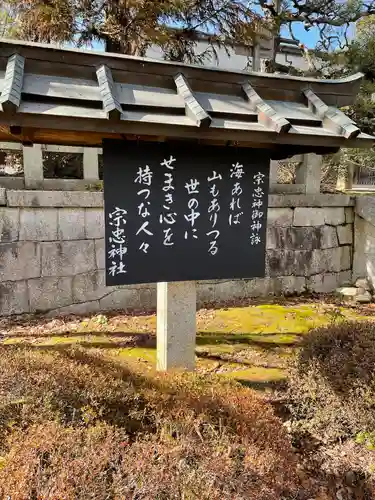 宗忠神御神詠
海あれば
山もありつる
世の中に
せまき心を
持つな人々
宗忠神社